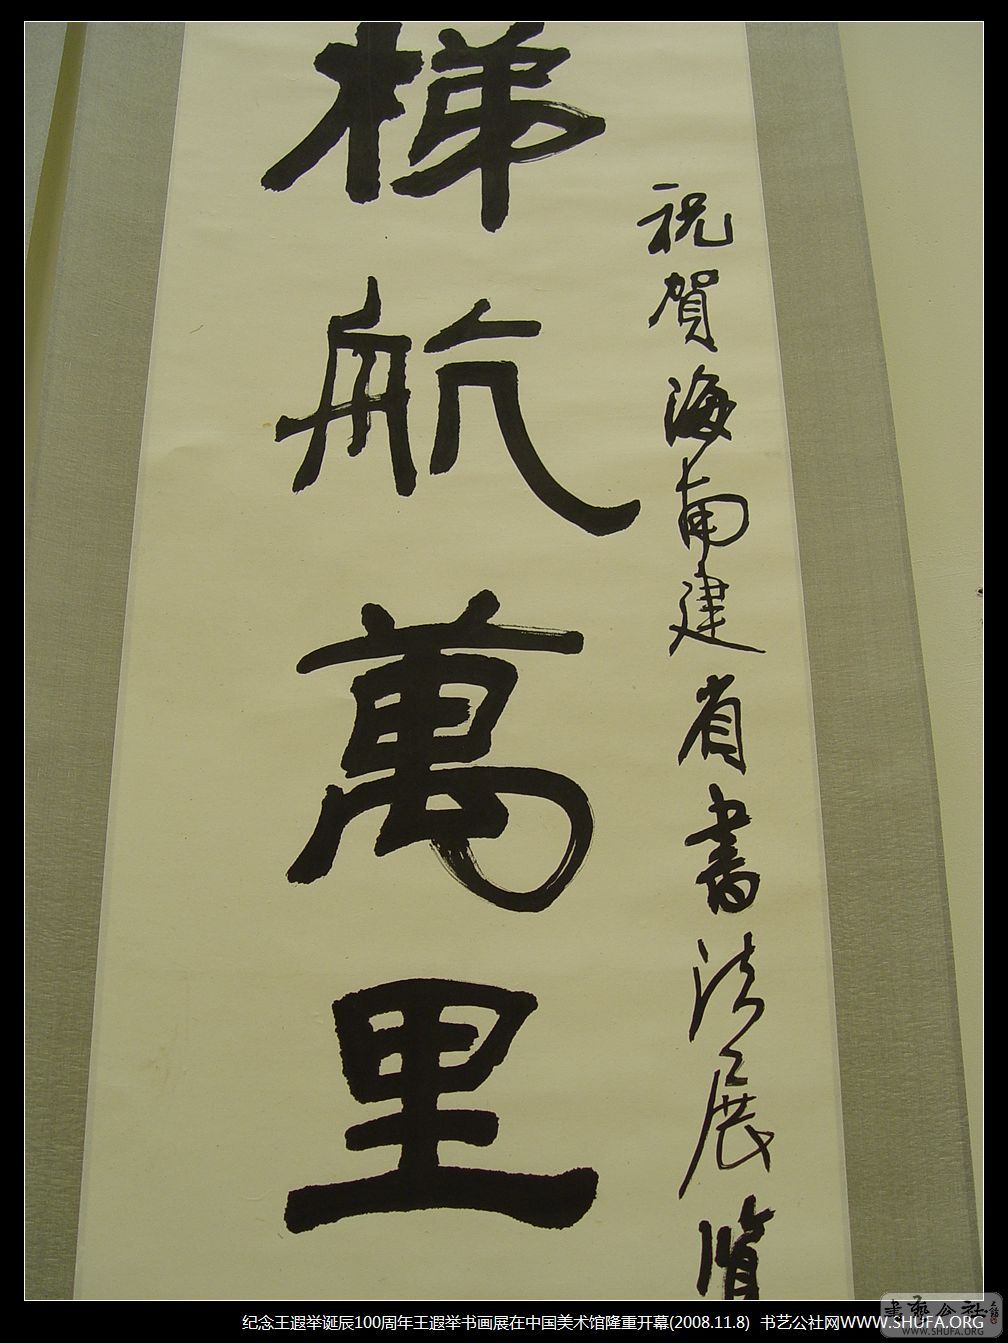 祝賀海南建省書法展覽
梯航萬里
纪念王遐举诞辰100周年王遐举书画展在中国美术馆隆重开幕(2008.11.8) 书艺公社网WWW.SHUFA.ORG
書艺公社
WWW.SHUFA.ORG